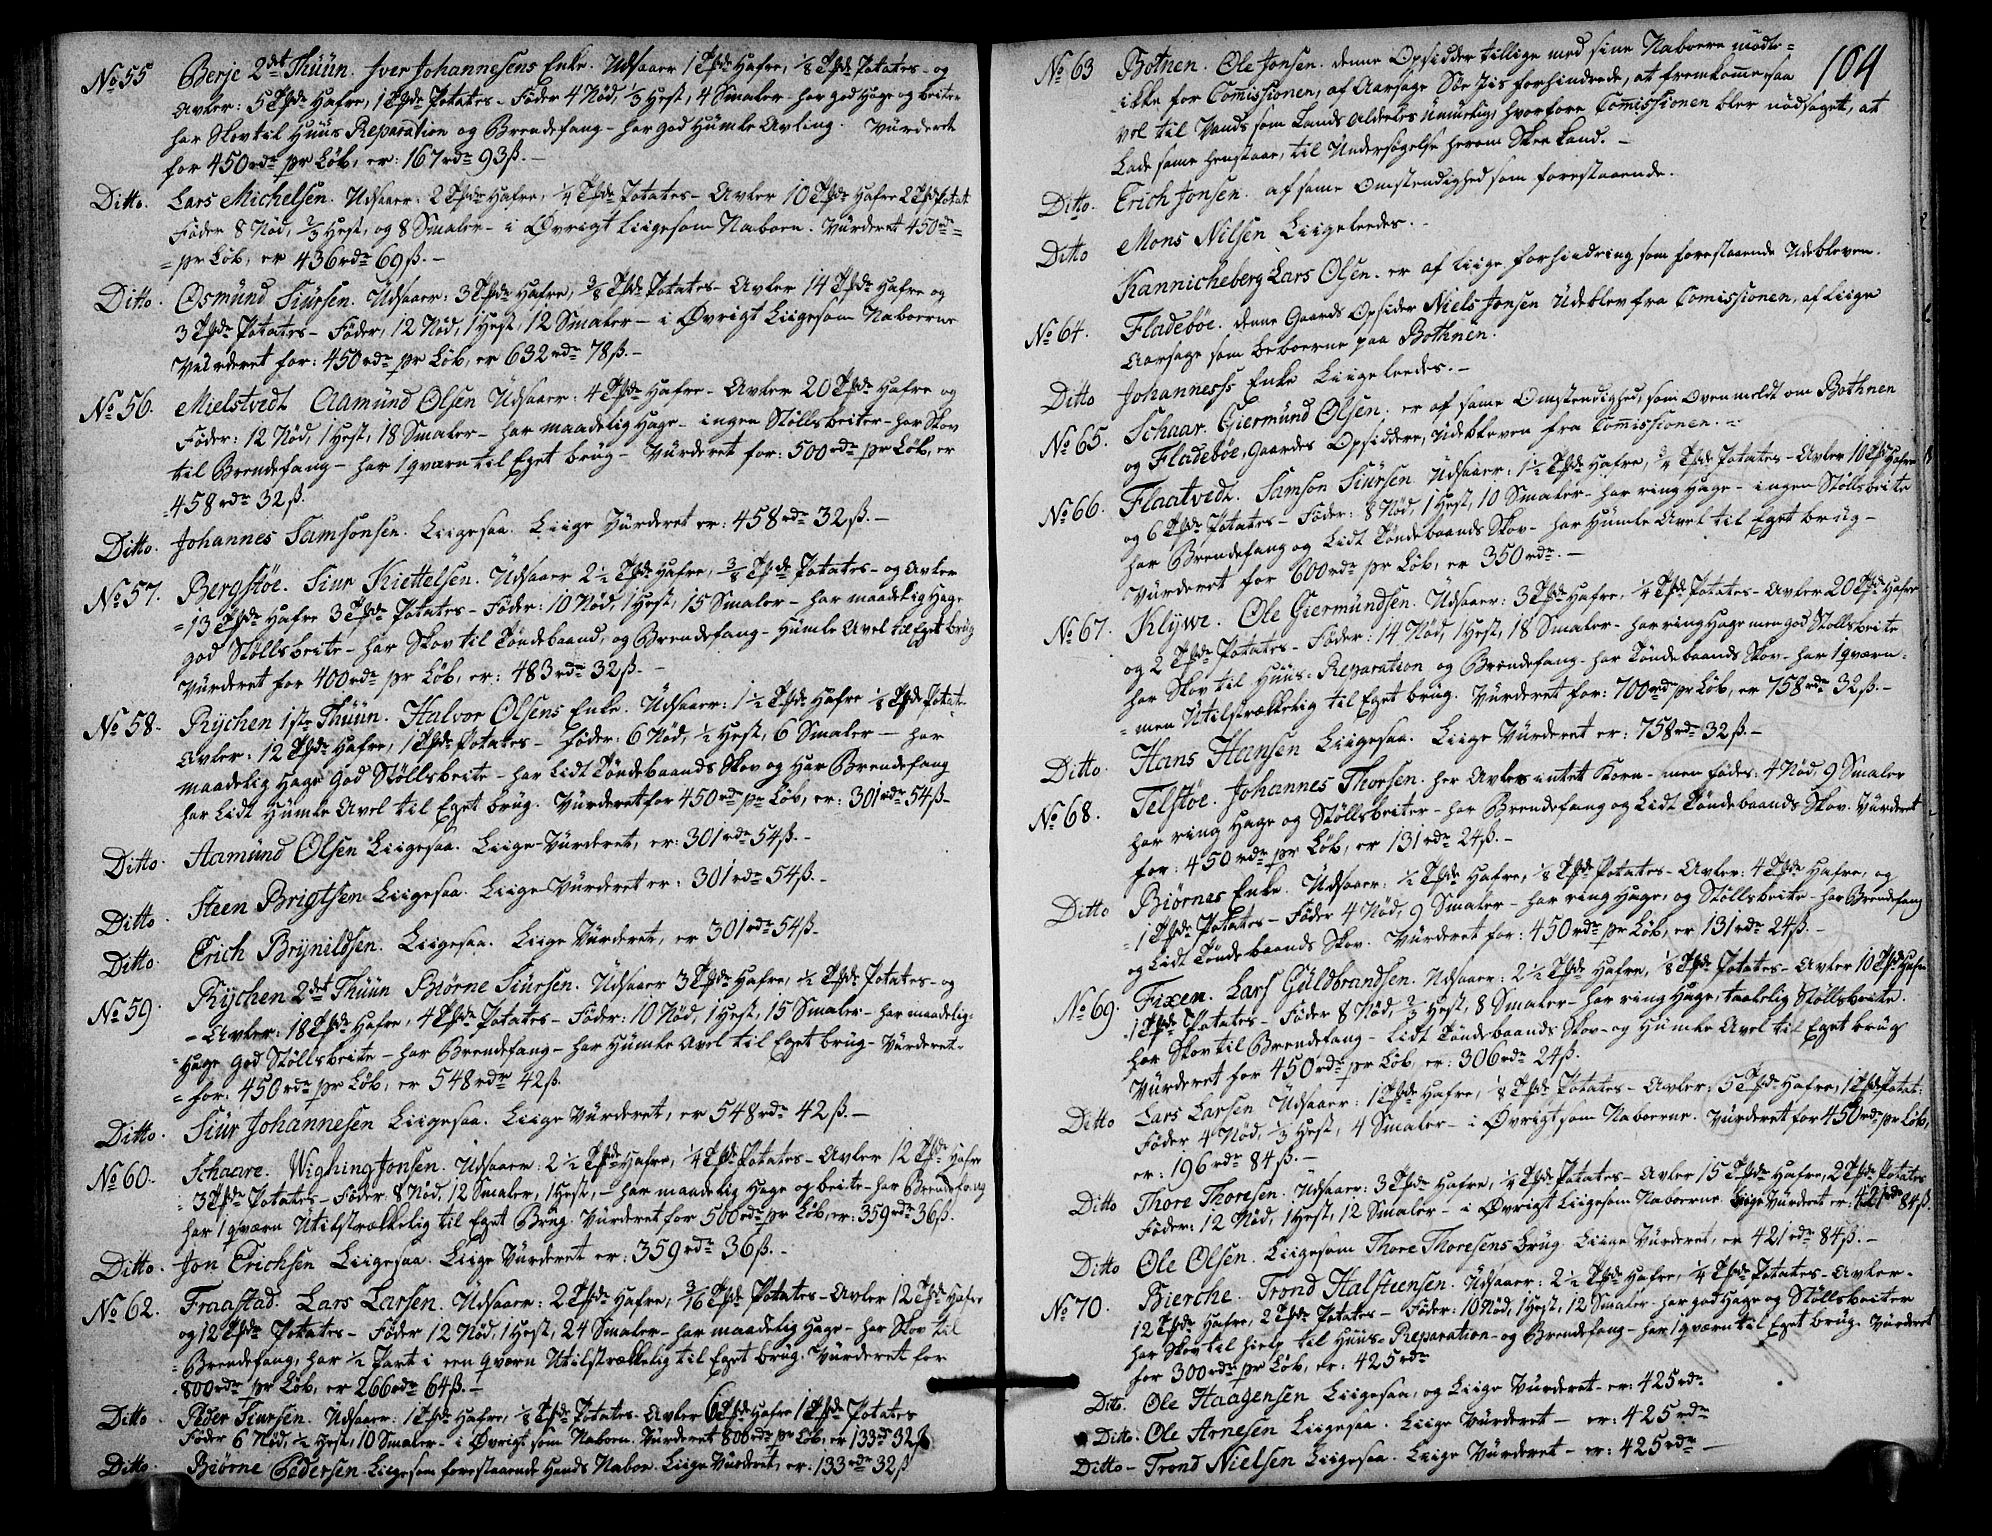 No 55 Berje 2det Thüün. Iver Johannesens Enke. Udsaaer 1 Tpde Hafre, 1/8 Tpde Potates - og
Avler: 5 Tpde Hafre, 1 Tpde Potates - Föder 4 Nöd, 1/3 Hest, 4 Smaler - har god Hage og beiter
har Skov til Huus Reparation og Brendefang - har god Humle Avling. Vürderede
for 450 rdr pr Löb, er: 167 rdr 93 ß. -
Ditto. Lars Michelsen. Udsaaer: 2 Tpde Hafre, 1/4 Tpde Potates - Avler 10 Tpde Hafre 2 Tpde Potat
Föder 8 Nöd, 2/3 Hest, og 8 Smaler - i Øvrigt liigesom Naboen. Vürderet 450 rdr =
= pr Löb, er 436 rdr 69 ß. -
Ditto. Osmünd Siursen. Udsaaer: 3 Tpde Hafre, 3/8 Tpde Potates - Avler 14 Tpde Hafre og
3 Tpde Potates - Föder, 12 Nöd, 1 Hest, 12 Smaler - i Øvrigt Liigesom Naboerne
Vürderet for: 450 rdr pr Löb, er 632 rdr 78 ß. -
No 56. Mielstvedt Aamünd Olsen Udsaaer: 4 Tpde Hafre - Avler 20 Tpde Hafre og
Föder: 12 Nöd, 1 Hest, 18 Smaler - har maadelig Hage - ingen Stöllsbeiter - har Skov
til Brendefang - har 1 qværn til Eget brug - Vürderet for: 500 rdr pr Löb, er
458 rdr 32 ß.
Ditto. Johannes Samsonsen. Liigesaa. Liige Vürderet er: 458 rdr 32 ß. -
No 57. Bergstöe. Siur Kiettelsen. Udsaaer 2 1/2 Tpde Hafre, 3/8 Tpde Potates - og Avler
= 13 Tpde Hafre 3 Tpde Potates - Föder: 10 Nöd, 1 Hest, 15 Smaler - har maadelig Hage
god Stöllsbeite - har Skov til Töndebaand, og Brendefang - Hümle Avel til Eget brüg
Vürderet for 400 rdr pr Löb, er: 483 rdr 32 ß. -
No 58. Rÿchen 1ste Thüün. Halvor Olsens Enke. Udsaaer: 1 1/2 Tpde Hafre 1/8 Tpde Potat.
Avler: 12 Tpde Hafre, 1 Tpde Potates - Föder: 6 Nöd, 1/2 Hest, 6 Smaler - har
maadelig Hage god Stöllsbeite - har Lidt Töndebaands Skov og Har Brendefang
har Lidt Hümle Avel til Eget brüg. Vürderet for 450 rdr pr Löb, er: 301 rdr 54 ß -
Ditto. Aamünd Olsen Liigesaa. Liige Vürderet, er: 301 rdr 54 ß. -
Ditto. Steen Brigtsen Liigesaa. Liige Vürderet er: 301 rdr 54 ß. -
Ditto. Erich Brÿnildsen. Liigesaa. Liige Vürderet, er 301 rdr 54 ß -
No 59. Rÿchen 2det Thüün Biörne Siursen. Udsaaer 3 Tpde Hafre, 1/2 Tpde Potates - og
- Avler: 18 Tpde Hafre, 4 Tpde Potates - Föder: 10 Nöd, 1 Hest, 15 Smaler - har maadelig =
= Hage god Stöllsbeite - har Brendefang - har Hümle Avel til Eget brug - Vürderet -
= for: 450 rdr pr Löb, er 548 rdr 42 ß.
Ditto. Siur Johannesen Liigesaa. Liige Vürderet, er 548 rdr 42 ß. -
No 60. Schaare. Wighing Jonsen. Udsaaer: 2 1/2 Tpde Hafre, 1/4 Tpde Potates - Avler 12 Tpde Hafre
3 Tpde Potates - Föder 8 Nöd, 12 Smaler, 1 Hest, - har maadelig Hage og beite - har Brendefang
har 1 qværn Utilstrækkelig til Eget Brug. Vürderet for 500 rdr pr Löb, er: 359 rdr 36 ß.
Ditto. Jon Erichsen Liigesaa. Liige Vürderet er: 359 rdr 36 ß. -
No 62. Fraastad. Lars Larsen. Udsaaer: 2 Tpde Hafre, 3/16 Tpde Potates - Avler 12 Tpde Hafre
og 12 Tpde Potates - Föder 12 Nöd, 1 Hest, 24 Smaler - har maadelig Hage - har Skov til
= Brendefang, har 1/2 Part i een qværn Utilstrækkelig til Eget brüg. Vürderet for
800 rdr pr Löb, er 266 rdr 64 ß. -
Ditto. Peder Siursen. Udsaaer: 1 Tpde Hafre, 1/8 Tpde Potates - Avler 6 Tpde Hafre 1 Tpde Potates
Föder 6 Nöd, 1/2 Hest, 10 Smaler - i Øvrigt som Naboen. Vürderet 800 rdr pr Löb, er 133 rdr 32 ß
Ditto. Biörne Pedersen. Liigesom forestaaende Hands Nabo. Liige Vürderet, er: 133 rdr 32 ß
104
No 63 Botnen. Ole Jonsen. denne Opsidder tillige med sine Naboere mödte =
ikke for Commissionen, af Aarsage Söe Iis forhinderede, at fremkomme saa
vel til Vands som Lands aldeles Umuelig, hvorfore Commissionen blev nödsaget, at
Lade same henstaae, til Undersögelse herom Skee Kand. -
Ditto. Erich Jonsen. af same Omstendighed som forestaaende.
Ditto Mons Nilsen Liigeleedes. -
Kannicheberg Lars Olsen. er af liige forhindring som forestaaende Udebleven.
No 64. Fladebøe. denne Gaards Opsider Niels Jonsen Udeblev fra Comissionen, af Liige
Aarsage som beboerne paa Bothnen.
Ditto Johanness Enke Liigeleedes. -
No 65. Schaar. Giermünd Olsen. er af same Omstendighed, som Ovenmeldt om Bothnen
og Fladebøe, Gaardes Opsiddere, Udebleven fra Comissionen. -
No 66. Flaatvedt. Samson Siursen. Udsaaer: 1 1/2 Tpde Hafre, 3/4 Tpde Potates - Avler 10 Tpde Hafre
og 6 Tpde Potates - Föder: 8 Nöd, 1 Hest, 10 Smaler - har ring Hage - ingen Stöllsbeite
har Brendefang og Lidt Töndebaands Skov - har Hümle Avel til Eget brüg -
Vürderet for 600 rdr pr Löb, er 350 rdr. -
No 67. Klÿve. Ole Giermündsen. Udsaaer: 3 Tpde Hafre, 1/4 Tpde Potates - Avler 20 Tpde Hafre
og 2 Tpde Potates - Föder: 14 Nöd, 1 Hest, 18 Smaler - har ring Hage men god Stöllsbeite
har Skov til Huus - Reparation og Brendefang - har Töndebaands Skov - har 1 qværn =
= men Utilstrækkelig til Eget brug. Vürderet for: 700 rdr pr Löb, er 758 rdr 32 ß. -
Ditto. Hans Hansen Liigesaa. Liige Vürderet er: 758 rdr 32 ß. -
No 68. Telstøe. Johannes Thorsen. her Avles intet Korn - men födes: 4 Nöd, 9 Smaler
har ring Hage og Stöllsbeiter - har Brendefang og Lidt Töndebaands Skov. Vürderet
for: 450 rdr pr Löb, er 131 rdr 24 ß. -
Ditto Biörnes Enke. Udsaaer: 1/2 Tpde Hafre, 1/8 Tpde Potates - Avler: 4 Tpde Hafre, og
= 1 Tpde Potates - Föder 4 Nöd, 9 Smaler - har ring Hage, og Stöllsbeite - har Brendefang
og Lidt Töndebaands Skov. Vürderet for: 450 rdr pr Löb, er 131 rdr 24 ß. -
No 69. Fixen. Lars Güldbrandsen. Udsaaer: 2 1/2 Tpde Hafre, 1/8 Tpde Potates - Avler 10 Tpde Hafre
1 Tpde Potates - Föder 8 Nöd, 2/3 Hest, 8 Smaler - har ring Hage, taalelig Stöllsbeite.
har Skov til Brendefang - Lidt Töndebaands Skov - og Hümle Avel til Eget brüg
Vürderet for 450 rdr pr Löb, er: 306 rdr 24 ß.
Ditto Lars Larsen Udsaaer: 1 Tpde Hafre, 1/8 Tpde Potates - Avler: 5 Tpde Hafre, 1 Tpde Potat:
Föder 4 Nöd, 1/3 Hest, 4 Smaler - i Øvrigt som Naboerne. Vürderet for 450 rdr pr Löb,
er: 196 rdr 84 ß. -
Ditto Thore Thoresen. Udsaaer: 3 Tpde Hafre, 1/4 Tpde Potates - Avler 15 Tpde Hafre, 2 Tpde Potates
Föder: 12 Nöd, 1 Hest, 12 Smaler - i Øvrigt Liigesom Naboerne. Liige Vürderet er: 421 rdr 84 ß.
Ditto Ole Olsen. Liigesom Thore Thoresens brüg. Liige Vürderet, er 421 rdr 84 ß. -
No 70. Bierche. Trond Halsteensen. Udsaaer: 2 1/2 Tpde Hafre, 1/4 Tpde Potates - Avler -
12 Tpde Hafre, 2 Tpde Potates - Föder: 10 Nöd, 1 Hest, 12 Smaler - har god Hage og Stöllsbeiter
har Skov til hielp til Huus - Reparation - og Brendefang - har 1 qværn til Eget brüg. Vürderet
for 300 rdr pr Löb, er: 425 rdr
Ditto. Ole Haagensen Liigesaa, og Liige Vürderet - er: 425 rdr
Ditto. Ole Arnesen Liigesaa. Liige Vürderet - er: 425 rdr -
Ditto - Trond Nielsen Liigesaa. Liige Vürderet - er: 425 rdr -